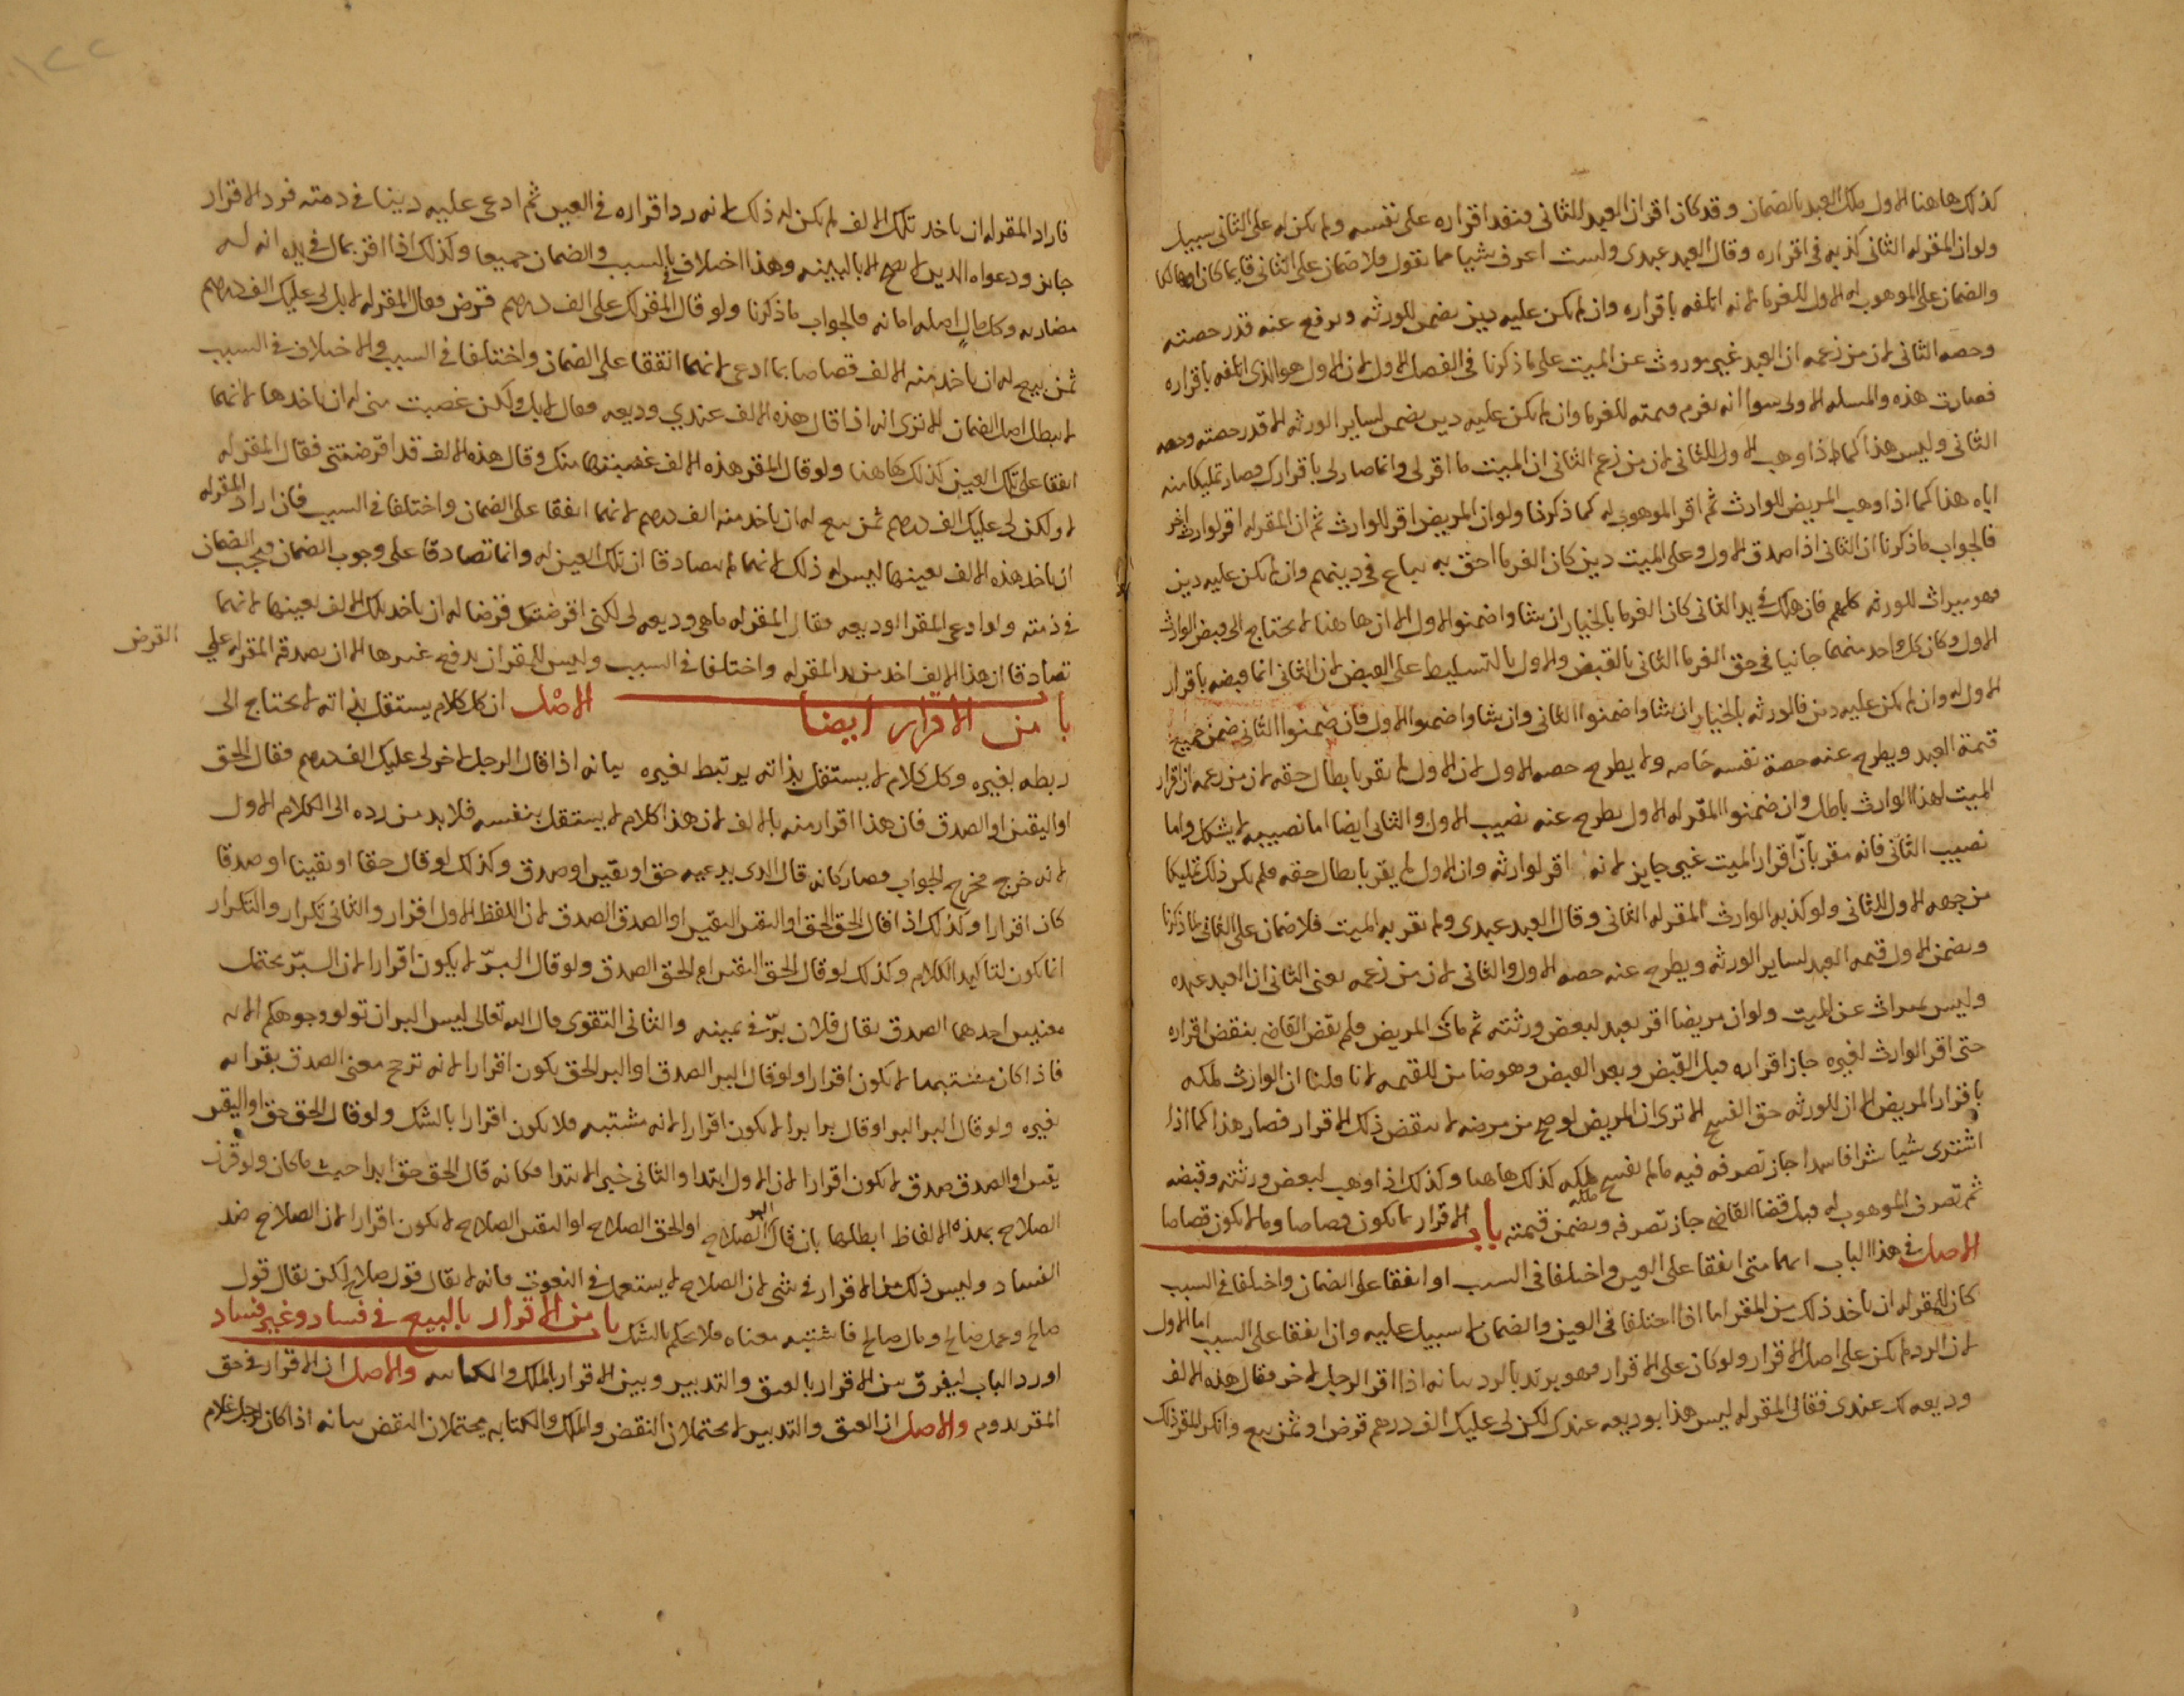 كذلك هاهنا الاول ملك العبد بالضمان وقد كان اقرار العبد للثاني فينفد اقراره على نفسه ولم يكن له على الثاني سبيل
ولو ان المقر له الثاني كذبه في اقراره وقال العبد عبدي ولست اعرف شيا مما تقول فلا ضمان على الثاني قايما كان او هالكا
والضمان على الموهوب له الاول للغرما لانه اتلفه باقراره وان لم يكن عليه دين يضمن للورثه ويرفع عنه قدر حصته
وحصه الثاني لان من زعمه ان العبد غير موروث عن الميت على ما ذكرنا في الفصل الاول لان الاول هو الذي اتلفه باقراره
فصارت هذه والمسله الاولى سوا انه يغرم قيمته للغرما وان لم يكن عليه دين يضمن لساير الورثه الا قدر حصته وحصه
الثاني وليس هذا كما اذا وهب الاول للثاني لان من زعم الثاني ان الميت ما اقر لي وانما صار لي باقرارك فصار تمليكا منه
اياه هذا كما اذا وهب المريض الوارث ثم اقر الموهوب له كما ذكرنا ولو ان المريض اقر للوارث ثم ان المقر له اقر لوارث اخر
فالجواب ما ذكرنا ان الثاني اذا صدق الاول وعلى الميت دين كان الغرما احق به يباع في دينهم وان لم يكن عليه دين
فهو ميراث للورثه كلهم فان هلك في يد الثاني كان الغرما بالخيار ان شاوا ضمنوا الاول الا ان هاهنا لا يحتاج الى قبض الوارث
الاول وكان كل واحد منهما جانيا في حق الغرما الثاني بالقبض والاول بالتسليط على القبض لان الثاني انما قبضه باقرار
الاول له وان لم يكن عليه دين فالورثه بالخيار ان شاوا ضمنوا الثاني وان شاوا ضمنوا الاول فان ضمنوا الثاني ضمن جميع
قيمة العبد ويطرح عنه حصة نفسه خاصه ولا يطرح حصه الاول لان الاول لم يقر بابطال حقه لان من زعمه ان اقرار
الميت لهذا الوارث باطل وان ضمنوا المقر له الاول يطرح عنه نصيب الاول والثاني ايضا اما نصيبه لا يشكل واما
نصيب الثاني فانه مقر بان اقرار الميت غير جايز لانه اقر لوارثه وان الاول لم يقر بابطال حقه فلم يكن ذلك تمليكا
من جهه الاول للثاني ولو كذبه الوارث المقر له الثاني وقال العبد عبدي ولم يقر به الميت فلا ضمان على الثاني لما ذكرنا
ويضمن الاول قيمه العبد لساير الورثه ويطرح عنه حصه الاول والثاني لان من زعمه يعني الثاني ان العبد عبده
وليس بميراث عن الميت ولو ان مريضا اقر بعبد لبعض ورثته ثم مات المريض فلم يقض القاضي بنقض اقراره
حتى اقر الوارث لغيره جاز اقراره قبل القبض وبعد القبض وهو ضامن للقيمه لانا قلنا ان الوارث ملكه
باقرار المريض الا ان للورثه حق الفسخ الا ترى ان المريض لو صح من مرضه لا ينقض ذلك الاقرار فصار هذا كما اذا
اشترى شيا شرا فاسدا جاز تصرفه فيه ما لم يفسخ ملكه كذلك هاهنا وكذلك اذا وهب لبعض ورثته وقبضه
ثم تصرف الموهوب له قبل قضا القاضي جاز تصرفه ويضمن قيمته باب الاقرار ما يكون قصاصا وما لا يكون قصاصا
الاصل في هذا الباب انهما متى اتفقا على العين واختلفا في السبب او اتفقا على الضمان واختلفا في السبب
كان للمقر له ان ياخذ ذلك من المقر اما اذا اختلفا في العين والضمان لا سبيل عليه وان اتفقا على السبب اما الاول
لان الرد لم يكن على اصل الاقرار ولو كان على الاقرار فهو يرتد بالرد بيانه اذا اقر الرجل لاخر فقال هذه الالف
وديعه لك عندي فقال المقر له ليس هذا بوديعه عندك لكن لي عليك الف درهم قرض او ثمن بيع وانكر المقر ذلك
فاراد المقر له ان ياخد تلك الالف لم يكن له ذلك لانه رد اقراره في العين ثم ادعى عليه دينا في ذمته فرد الاقرار
جايز ودعواه الدين لا يصح الا بالبينه وهذا اختلاف في السبب والضمان جميعا وكذلك اذا اقر بمال في يده انه له
مضاربه وكل مال اصله امانه فالجواب ما ذكرنا ولو قال المقر لك على الف درهم قرض فقال المقر له لا بل لي عليك الف درهم
ثمن بيع له ان ياخد منه الالف قصاصا بما ادعى لانهما اتفقا على الضمان واختلفا في السبب والاختلاف في السبب
لا يبطل اصل الضمان الا ترى انه اذا قال هذه الالف عندي وديعه فقال لا بل ولكن غصبت مني له ان ياخدها لانهما
اتفقا على تلك العين كذلك هاهنا ولو قال المقر هذه الالف غصبتها منك وقال هذه الالف قد اقرضتني فقال المقر له
لا ولكن لي عليك الف درهم ثمن بيع له ان ياخد منه الف درهم لانهما اتفقا على الضمان واختلفا في السبب فان اراد المقر له
ان ياخد هذه الالف بعينها ليس له ذلك لانهما لم يتصادقا ان تلك العين له وانما تصادقا على وجوب الضمان فيجب الضمان
في ذمته ولو ادعى المقر الوديعه فقال المقر له ما هي وديعه لي لكني اقرضتكها قرضا له ان ياخد تلك الالف بعينها لانهما
تصادقا ان هذا الالف اخد من يد المقر له واختلفا في السبب وليس للمقر ان يدفع غيرها الا ان يصدقه المقر له على القرض
باب من الاقرار ايضا الاصل ان كل كلام يستقل بذاته لا يحتاج الى
ربطه بغيره وكل كلام لا يستقل بذاته يرتبط بغيره بيانه اذا قال الرجل لاخر لي عليك الف درهم فقال الحق
او اليقين او الصدق فان هذا اقرار منه بالالف لان هذا كلام لا يستقل بنفسه فلا بد من رده الى الكلام الاول
لانه خرج مخرج الجواب فصار كانه قال الدى يدعيه حق او يقين او صدق وكذلك لو قال حقا او يقينا او صدقا
كان اقرارا وكذلك اذا قال الحق الحق او اليقين اليقين او الصدق الصدق لان اللفظ الاول اقرار والثاني تكرار والتكرار
انما يكون لتاكيد الكلام وكذلك لو قال الحق اليقين او الحق الصدق ولو قال البر لا يكون اقرارا لان البر يحتمل
معنيين احدهما الصدق يقال فلان بر في يمينه والثاني التقوى قال الله تعالى ليس البر ان تولو وجوهكم الايه
فاذا كان مشتبها لا يكون اقرارا ولو قال البر الصدق او البر الحق يكون اقرارا لانه ترجح معنى الصدق بقرانه
بغيره ولو قال البر البر او قال برا برا لا يكون اقرارا لانه مشتبه فلا يكون اقرارا بالشك ولو قال الحق حق او اليقين
يقين او الصدق صدق لا يكون اقرارا لان الاول ابتدا والثاني خبر الابتدا فكانه قال الحق حق ابدا حيث ما كان ولو قرن
الصلاح بهذه الالفاظ ابطلها بان قال البر الصلاح او الحق الصلاح او اليقين الصلاح لا يكون اقرارا لان الصلاح ضد
الفساد وليس ذلك من الاقرار في شي لان الصلاح لا يستعمل في النعوت فانه لا يقال قول صلاح لكن يقال قول
صالح وعمل صالح ومال صالح فاشتبه معناه فلا يحكم بالشك باب من الاقرار بالبيع في فساد وغير فساد
اورد الباب ليفرق بين الاقرار بالعتق والتدبير وبين الاقرار بالملك والكتابه والاصل ان الاقرار في حق
المقر يدوم والاصل ان العتق والتدبير لا يحتملان النقض والملك والكتابه يحتملان النقض بيانه اذا كان لرجل غلام